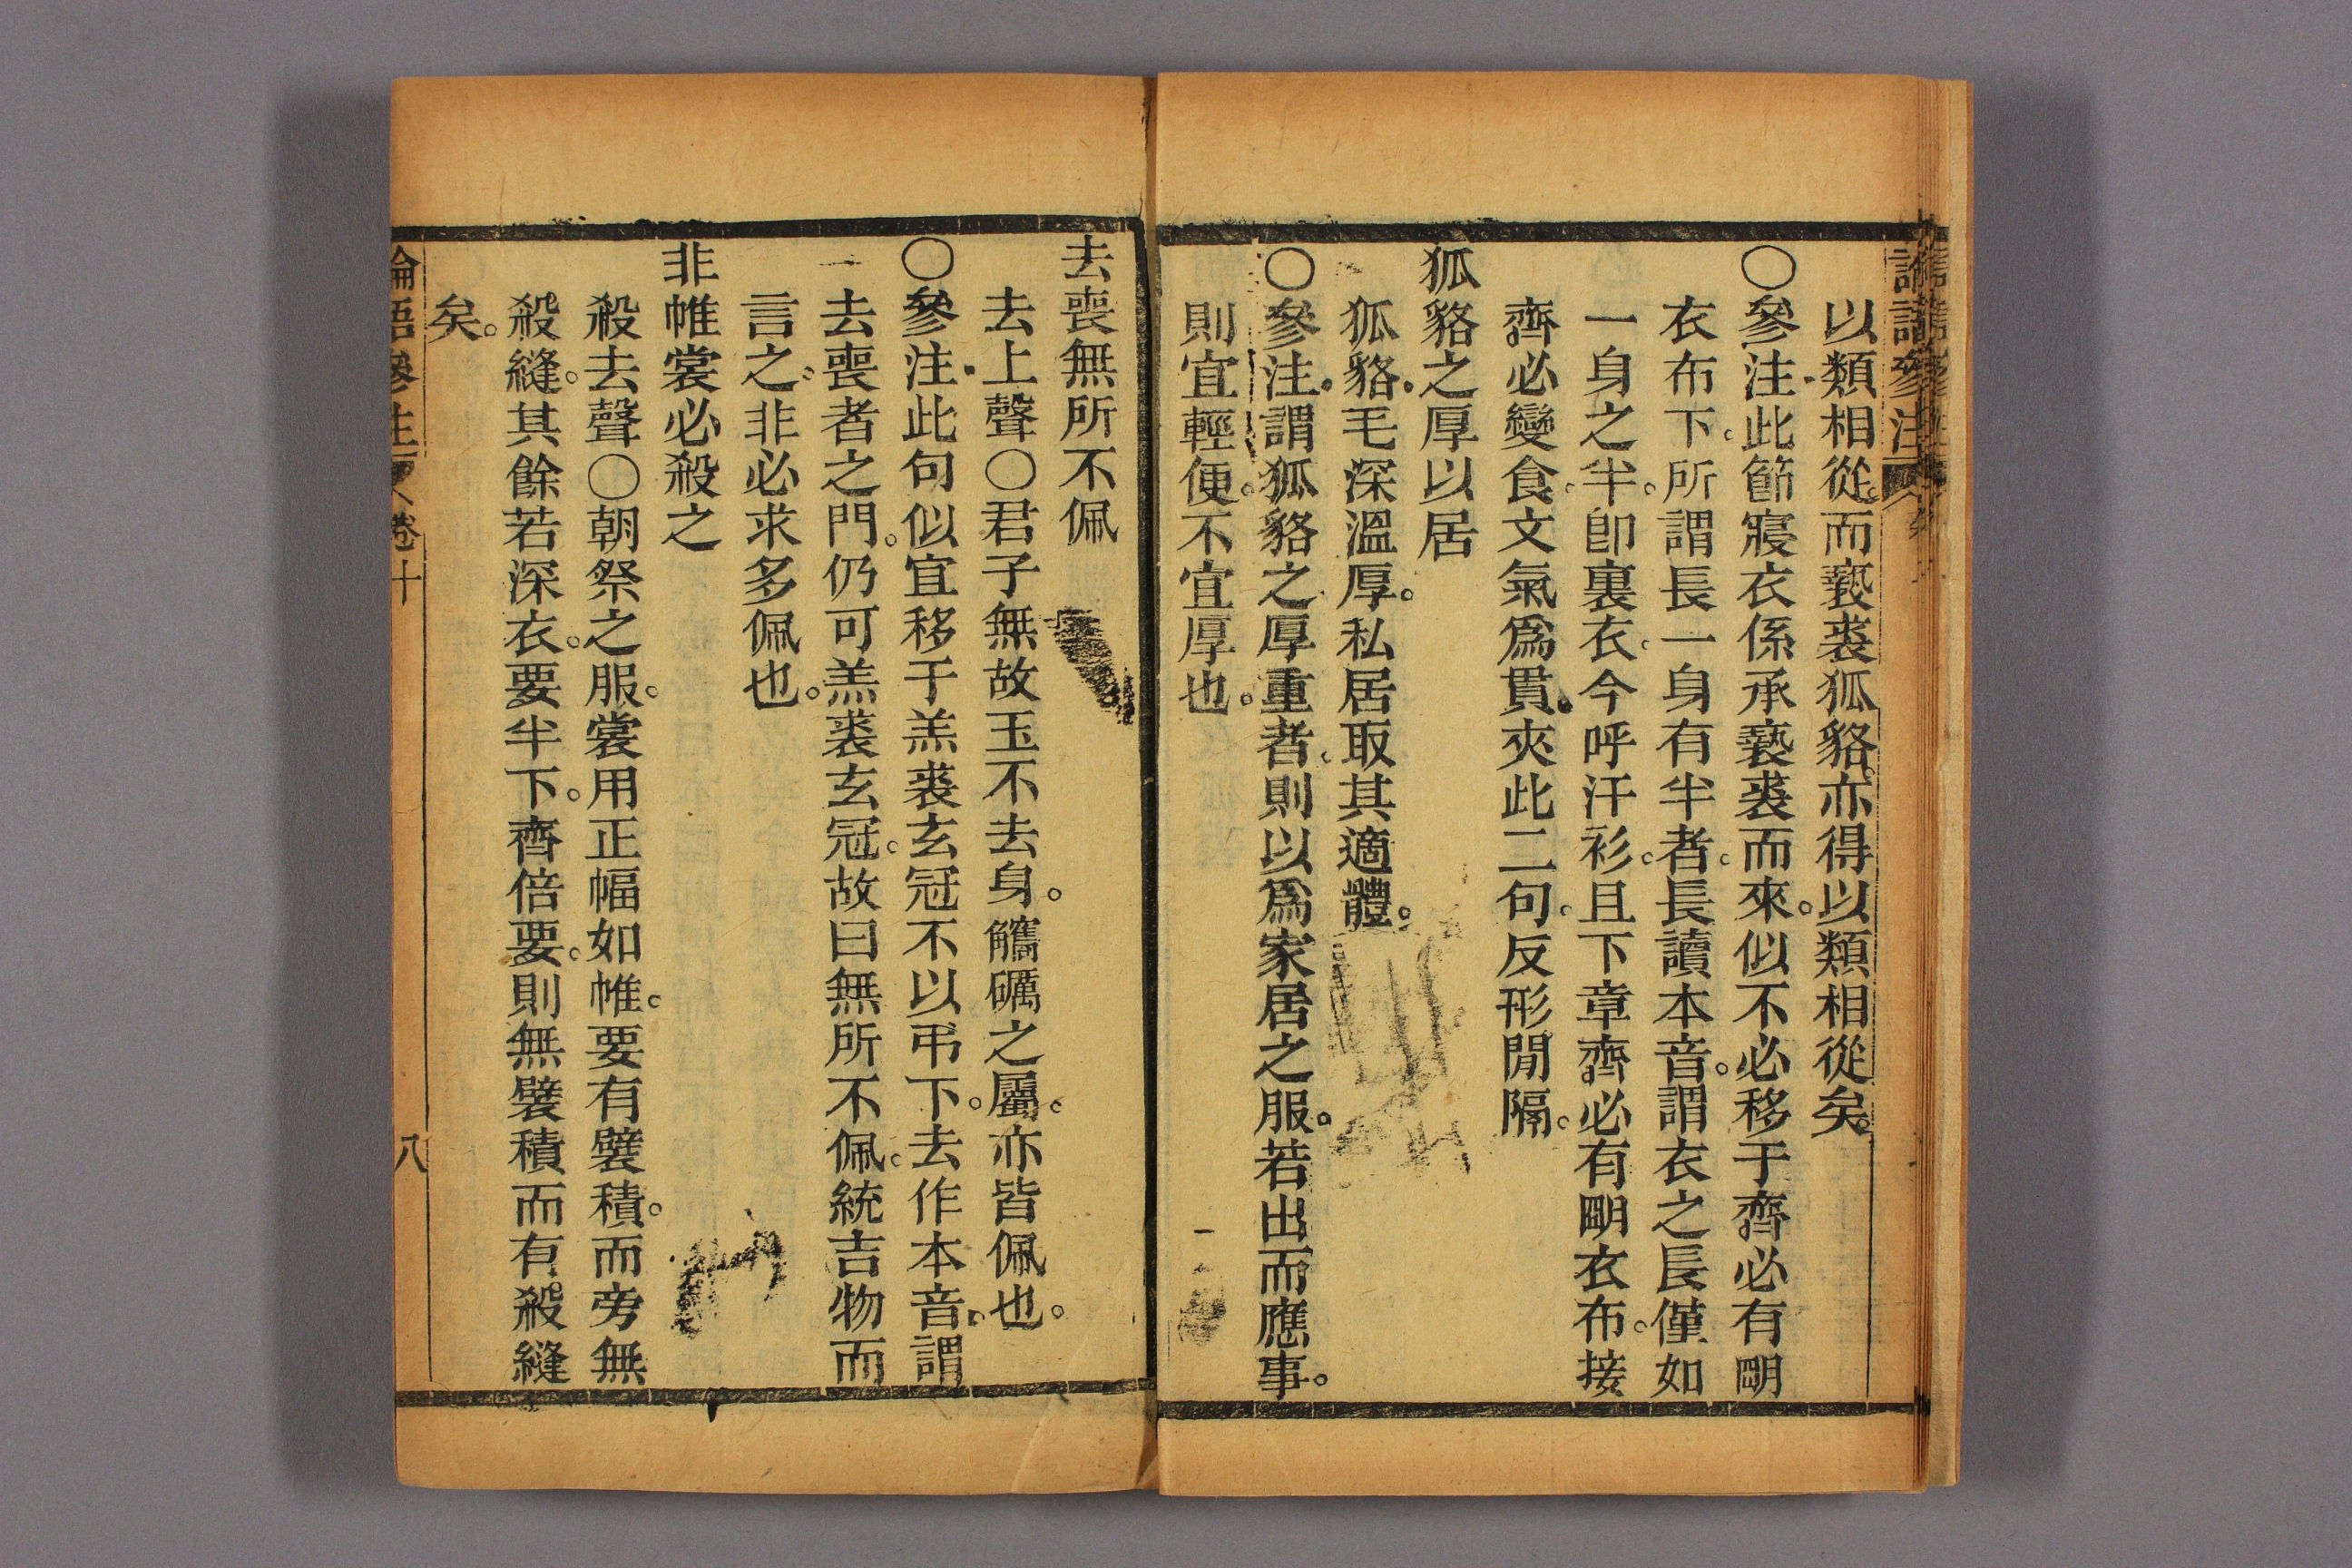 以類相從。而褻裘狐貉。亦得以類相從矣。
○參注。此節寢衣係承褻裘而來。似不必移于齊必有明
衣布下。所謂長一身有半者。長讀本音。謂衣之長僅如
一身之半。卽裏衣。今呼汗衫。且下章齊必有明衣布。接
齊必變食。文氣爲貫。夾此二句。反形閒隔。
狐貉之厚以居
狐貉。毛深溫厚。私居取其適體。
○參注。謂狐貉之厚重者。則以爲家居之服。若出而應事。
則宜輕便。不宜厚也。
去喪無所不佩
去上聲○君子無故玉不去身。觿礪之屬。亦皆佩也。
○參注。此句似宜移于羔裘玄冠不以弔下。去作本音。謂
一去喪者之門。仍可羔裘玄冠。故曰無所不佩。統吉物而
言之。非必求多佩也。
非帷裳必殺之
殺去聲○朝祭之服。裳用正幅如帷。要有襞積。而旁無
殺縫。其餘若深衣。要半下。齊倍要。則無襞積而有殺縫
矣。
論語參注 卷十 八